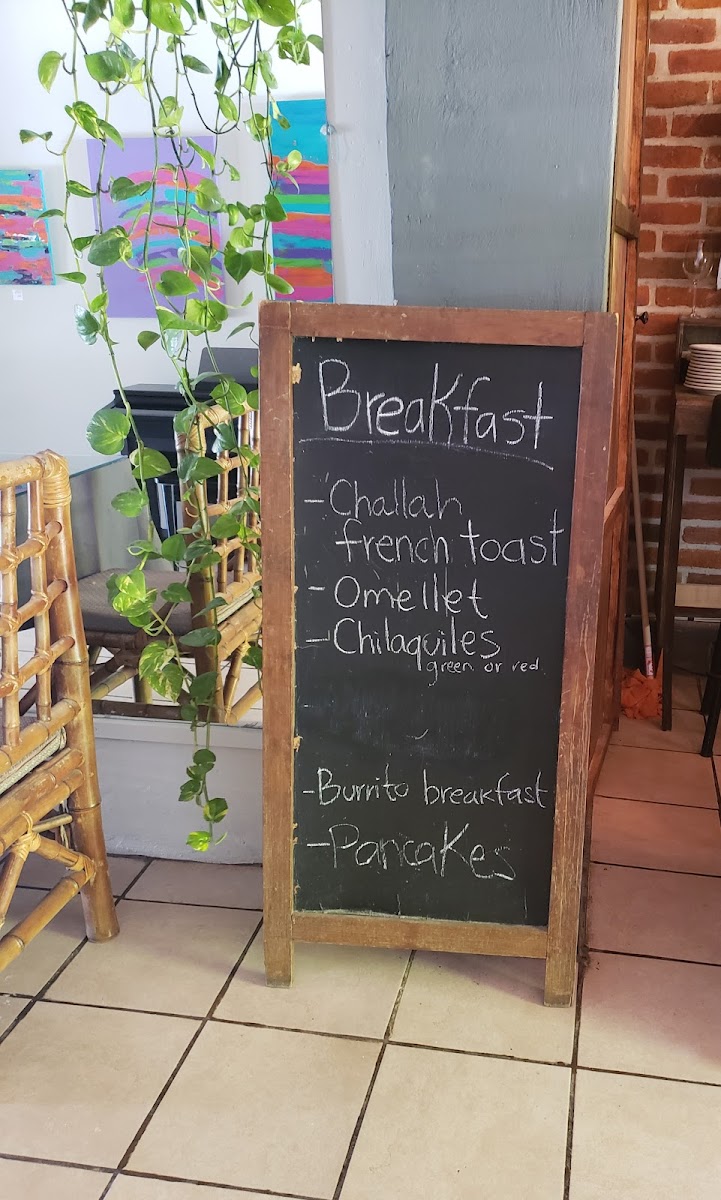 Breakfast
- Challah
french toast
- Omellet
- Chilaquiles
green or red.
- Burrito breakfast
- Pancakes